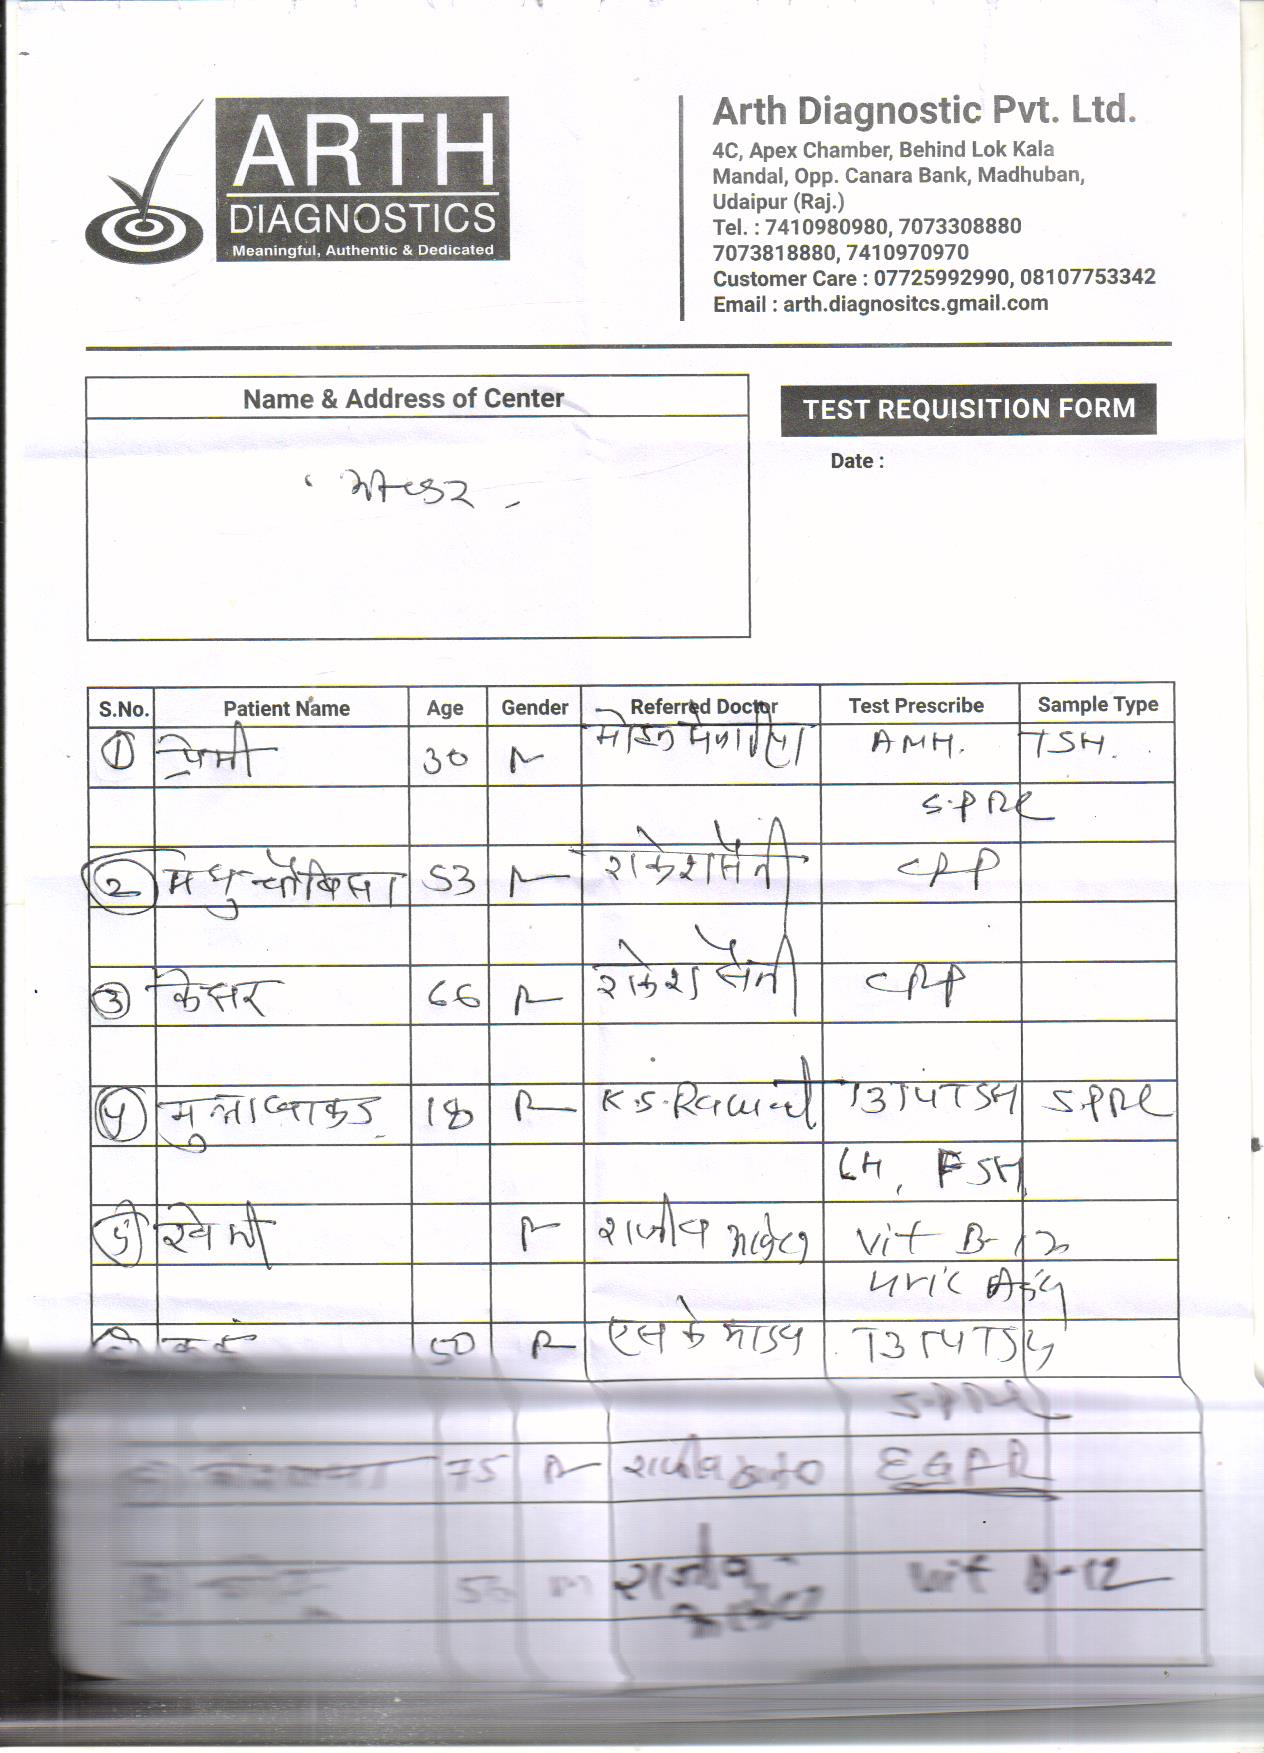 ARTH
DIAGNOSTICS
Meaningful, Authentic & Dedicated
Arth Diagnostic Pvt. Ltd.
4C, Apex Chamber, Behind Lok Kala
Mandal, Opp. Canara Bank, Madhuban,
Udaipur (Raj.)
Tel. : 7410980980, 7073308880
7073818880, 7410970970
Customer Care : 07725992990, 08107753342
Email : arth.diagnositcs.gmail.com
Name & Address of Center
TEST REQUISITION FORM
Date :
S.No. Patient Name Age Gender Referred Doctor Test Prescribe Sample Type
1 प्रेमी 30 AMH. TSH.
S.PRL
2 मधु 53 राकेश सैनी CRP
3 केसर 66 राकेश सैनी CRP
4 18 K.S. T3T4TSH S.PRL
LH, FSH
5 राजीव Vit B-12
Uric
50 एस के T3T4TSH
S.PRL
75 राजीव
56 m राजीव Vit B-12